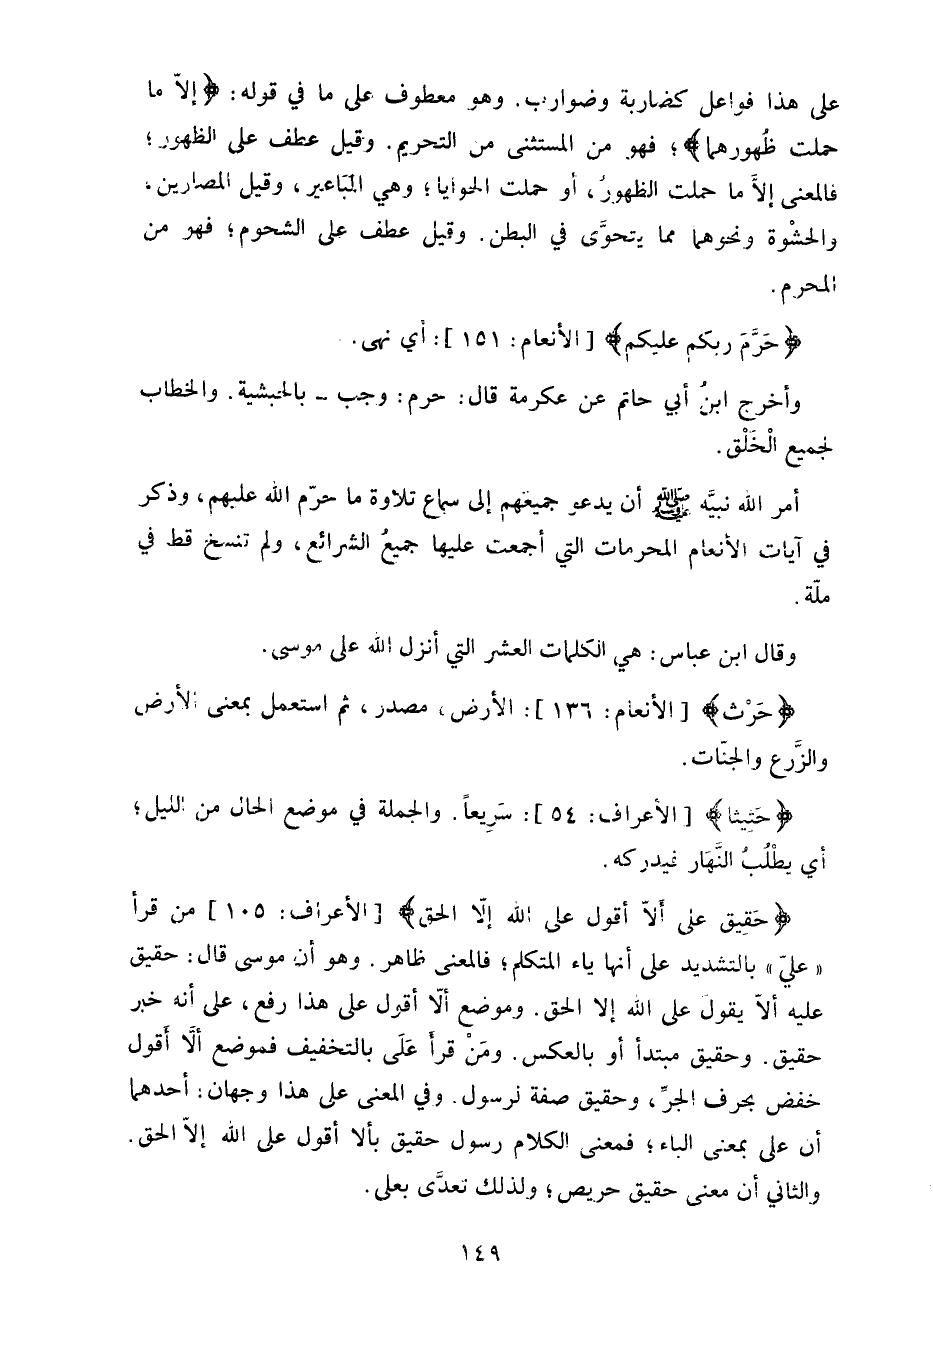 على هذا فواعل كضاربة وضوارب. وهو معطوف على ما في قوله: ﴿إلاّ ما
حملت ظُهورهما﴾؛ فهو من المستثنى من التحريم. وقيل عطف على الظهور؛
فالمعنى إلاَّ ما حملت الظهورُ، أو حملت الحوايا؛ وهي المَباعير، وقيل المصارين،
والحشْوة ونحوهما مما يتحوَّى في البطن. وقيل عطف على الشحوم؛ فهو من
المحرم.
﴿حَرَّمَ ربكم عليكم﴾ [الأنعام: ١٥١]: أي نهى.
وأخرج ابنُ أبي حاتم عن عكرمة قال: حرم: وجب - بالحبشية. والخطاب
لجميع الْخَلْق.
أمر الله نبيَّه ﷺ أن يدعو جميعهم إلى سماع تلاوة ما حرّم الله عليهم، وذكر
في آيات الأنعام المحرمات التي أجمعت عليها جميعُ الشرائع، ولم تنسخ قط في
ملّة.
وقال ابن عباس: هي الكلمات العشر التي أنزل الله على موسى.
﴿حَرْث﴾ [الأنعام: ١٣٦]: الأرض، مصدر، ثم استعمل بمعنى الأرض
والزَّرع والجنّات.
﴿حَثِيثا﴾ [الأعراف: ٥٤]: سَرِيعاً. والجملة في موضع الحال من الليل؛
أي يطْلُبُ النَّهَار فيدركه.
﴿حَقِيق على أَلاّ أقول على الله إلّا الحق﴾ [الأعراف: ١٠٥] من قرأ
«عليّ» بالتشديد على أنها ياء المتكلم؛ فالمعنى ظاهر. وهو أن موسى قال: حقيق
عليه ألاّ يقولَ على الله إلا الحق. وموضع ألّا أقول على هذا رفع، على أنه خبر
حقيق. وحقيق مبتدأ أو بالعكس. ومَنْ قرأَ عَلَى بالتخفيف فموضع ألَّا أَقول
خفض بحرف الجرِّ، وحقيق صفة لرسول. وفي المعنى على هذا وجهان: أحدهما
أن على بمعنى الباء؛ فمعنى الكلام رسول حقيق بألا أقول على الله إلاّ الحق.
والثاني أن معنى حقيق حريص؛ ولذلك تعدَّى بعلى.
١٤٩